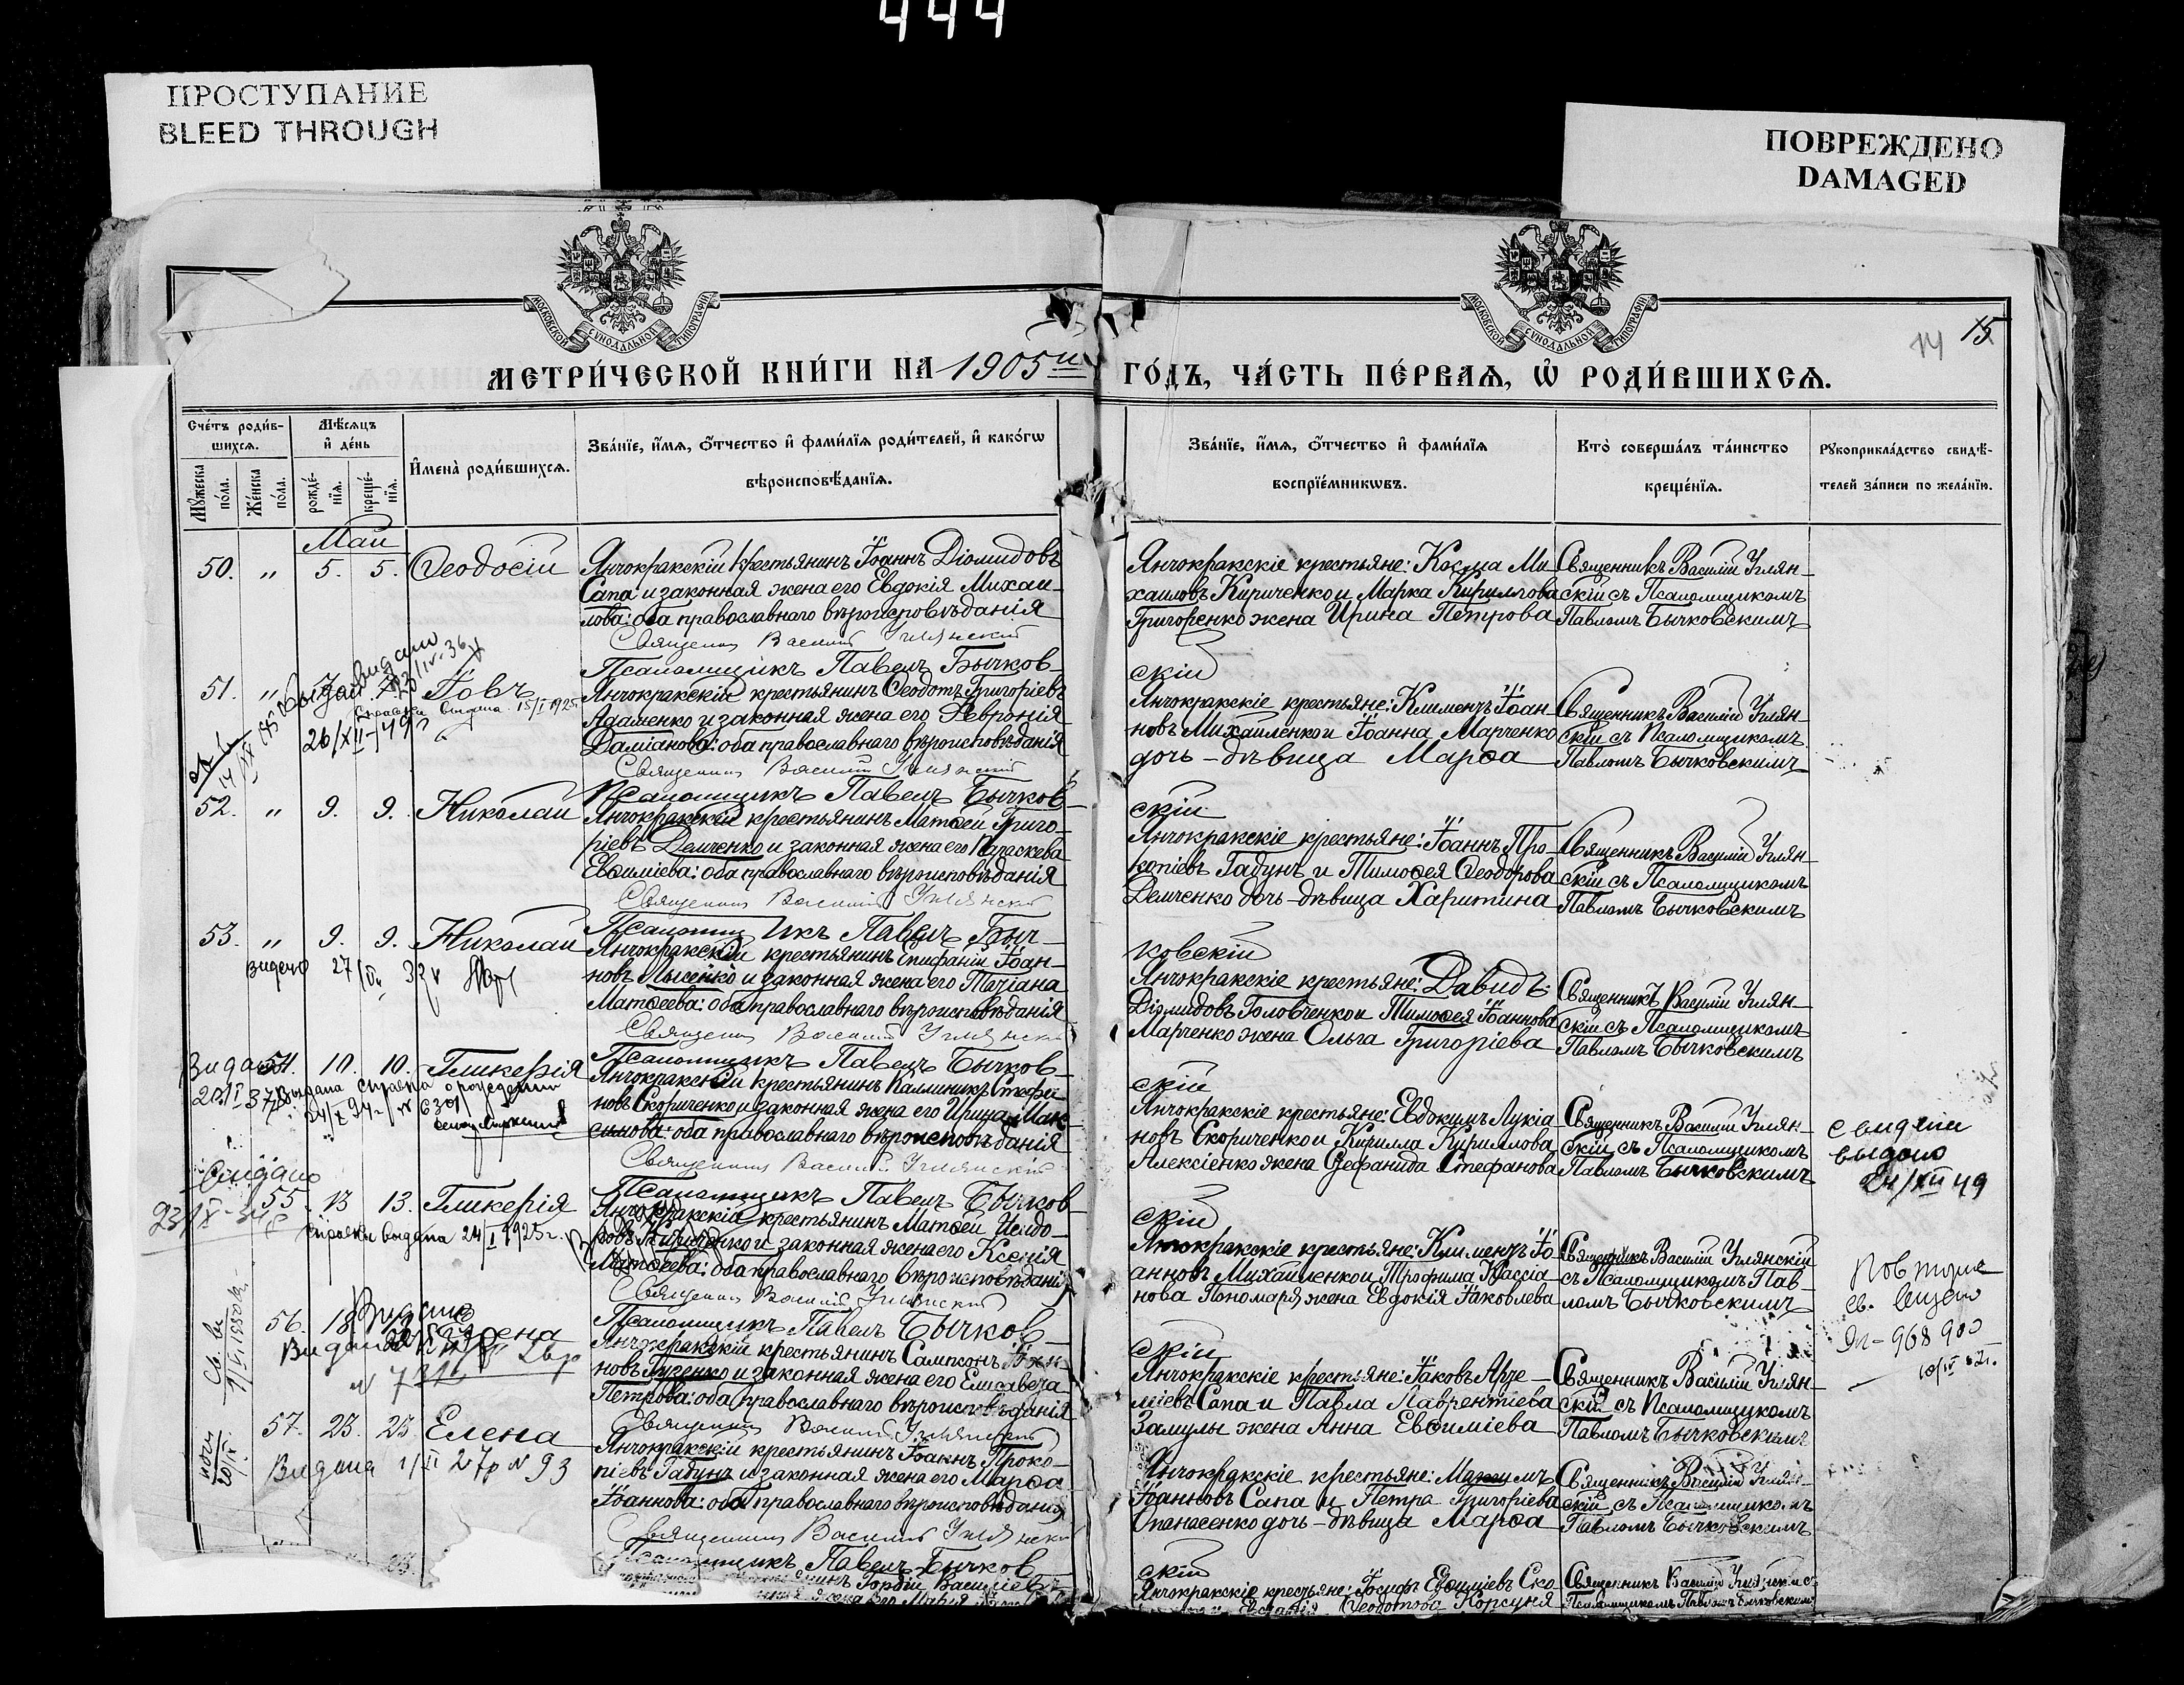 444
ПРОСТУПАНИЕ
BLEED THROUGH
ПОВРЕЖДЕНО
DAMAGED
МОСКОВСКОЙ СѴНОДАЛЬНОЙ ТИПОГРАФІИ
МОСКОВСКОЙ СѴНОДАЛЬНОЙ ТИПОГРАФІИ
14 15
МЕТРИ́ЧЕСКОЙ КНИ́ГИ НА 1905й ГО́ДЪ, ЧА́СТЬ ПЕ́РВАѦ, Ѡ҆ РОДИ́ВШИХСѦ.
Сче́тъ роди́в-
шихсѧ.
Мꙋ́жеска по́ла.
Же́нска по́ла.
Мѣ́сѧцъ
и҆ де́нь
рожде́-
нїѧ.
креще́-
нїѧ.
И҆мена̀ роди́вшихсѧ.
Зва́нїе, и҆́мѧ, ѻ҆́тчество и҆ фами́лїѧ роди́телей, и҆ како́гѡ
вѣроисповѣ́данїѧ.
Зва́нїе, и҆́мѧ, ѻ҆́тчество и҆ фами́лїѧ
воспрїе́мникѡвъ.
Кто̀ соверша́лъ та́инство
креще́нїѧ.
Рꙋкоприкла́дство свидѣ́-
телей за́писи по жела́нїю.
Май
50. " 5. 5. Ѳеодосій
Янчокракскій крестьянинъ Іоаннъ Діомидовъ
Сапа и законная жена его Евдокія Михаи-
лова: оба православнаго вѣроисповѣданія
Священникъ Василий Углянский
Псаломщикъ Павелъ Бычков-
Янчокракскіе крестьяне: Косма Ми-
хаиловъ Кириченко и Марка Кириллова
Григоренко жена Ирина Петрова
скій
Священникъ Василій Углян-
скій съ Псаломщикомъ
Павломъ Бычковскимъ
51. " Іовъ
Справка выдана 15/I 1925
26/XII-49
Янчокракскій крестьянинъ Ѳеодотъ Григоріевъ
Адаменко и законная жена его Февронія
Даміанова: оба православнаго вѣроисповѣданія
Священникъ Василий Углянский
Псаломщикъ Павелъ Бычков-
Янчокракскіе крестьяне: Климентъ Іоан-
новъ Михайленко и Іоанна Марченко
дочь-дѣвица Марѳа
скій
Священникъ Василій Углян-
скій съ Псаломщикомъ
Павломъ Бычковскимъ
52. " 9. 9. Николай
Янчокракскій крестьянинъ Матѳей Григо-
ріевъ Демченко и законная жена его Параскева
Евѳиміева: оба православнаго вѣроисповѣданія
Священникъ Василий Углянский
Псаломщикъ Павелъ Быч-
Янчокракскіе крестьяне: Іоаннъ Про-
копіевъ Гадунъ и Тимоѳея Ѳеодорова
Демченко дочь-дѣвица Харитина
ковскій
Священникъ Василій Углян-
скій съ Псаломщикомъ
Павломъ Бычковскимъ
53. " 9. 9. Николай
Янчокракскій крестьянинъ Епифаній Іоан-
новъ Лысенко и законная жена его Татіана
Матѳеева: оба православнаго вѣроисповѣданія
Священникъ Василий Углянский
Псаломщикъ Павелъ Бычков-
Янчокракскіе крестьяне: Давидъ
Діомидовъ Головченко и Тимоѳея Іоаннова
Марченко жена Ольга Григоріева
скій
Священникъ Василій Углян-
скій съ Псаломщикомъ
Павломъ Бычковскимъ
54. 10. 10. Гликерія
Выдана справка о рождении
Янчокракскій крестьянинъ Каллиникъ Стефа-
новъ Скориченко и законная жена его Ирина Мак-
симова: оба православнаго вѣроисповѣданія
Священникъ Василий Углянский
Псаломщикъ Павелъ Бычков-
Янчокракскіе крестьяне: Евдокимъ Лукіа-
новъ Скориченко и Кирилла Кириллова
Алексіенко жена Стефанида Стефанова
скій
Священникъ Василій Углян-
скій съ Псаломщикомъ
Павломъ Бычковскимъ
выдано
24/XII 49
55. 13 13. Гликерія
Справка выдана 24/I 1925 г.
Янчокракскій крестьянинъ Матѳей Исидо-
ровъ Кириченко и законная жена его Ксенія
Матѳеева: оба православнаго вѣроисповѣданія
Священникъ Василий Углянский
Псаломщикъ Павелъ Бычков-
Янчокракскіе крестьяне: Климентъ Іо-
анновъ Михайленко и Трофима Кассіа-
нова Пономаря жена Евдокія Іаковлева
скій
Священникъ Василій Углянскій
съ Псаломщикомъ Пав-
ломъ Бычковскимъ
56. 18
Янчокракскій крестьянинъ Сампсонъ Іоан-
новъ Гузенко и законная жена его Елисавета
Петрова: оба православнаго вѣроисповѣданія
Священникъ Василий Углянский
Янчокракскіе крестьяне: Іаковъ Арте-
міевъ Сапа и Павла Лаврентіева
Замулы жена Анна Евѳиміева
Священникъ Василій Углян-
скій съ Псаломщикомъ
Павломъ Бычковскимъ
57. 23. 23 Елена
Видана 1/II 27р N 93
Янчокракскій крестьянинъ Іоаннъ Проко-
піевъ Гадунъ и законная жена его Марѳа
Іоаннова: оба православнаго вѣроисповѣданія
Священникъ Василий Углянский
Псаломщикъ Павелъ Бычков
Янчокракскіе крестьяне: Максимъ
Іоанновъ Сапа и Петра Григоріева
Опанасенко дочь-дѣвица Марѳа
скій
Священникъ Василій Углян-
скій съ Псаломщикомъ
Павломъ Бычковскимъ
Гордій Василіевъ
жена его Марія
Янчокракскіе крестьяне: Іосифъ Евѳиміевъ Ско-
Ѳеодотова Корсуня
Священникъ Василій Углянскій съ
Псаломщикомъ Павломъ Бычковскимъ